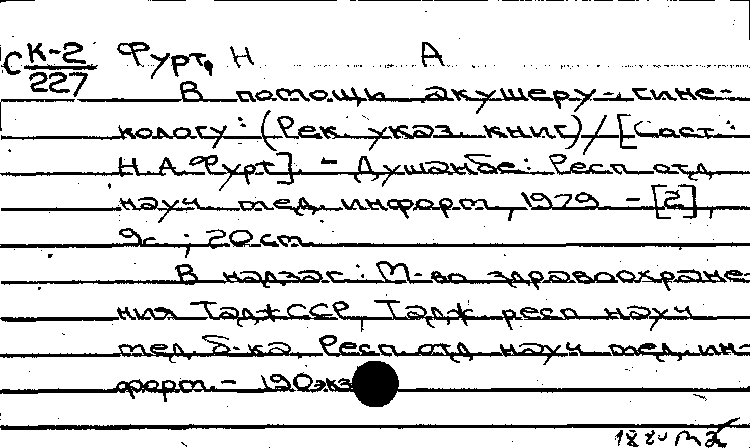 С К-2 Фурт, Н А
227
В помощь акушеру-гине-
кологу: (Рек. указ. книг) / [Сост.:
Н.А. Фурт]. - Душанбе: Респ отд
науч. мед. информ, 1979. - [2],
9с.; 20 см.
В надзаг.: М-во здравоохране-
ния ТаджССР, Тадж. респ науч
мед. б-ка, Респ. отд науч мед. ин-
форм. - 190 экз